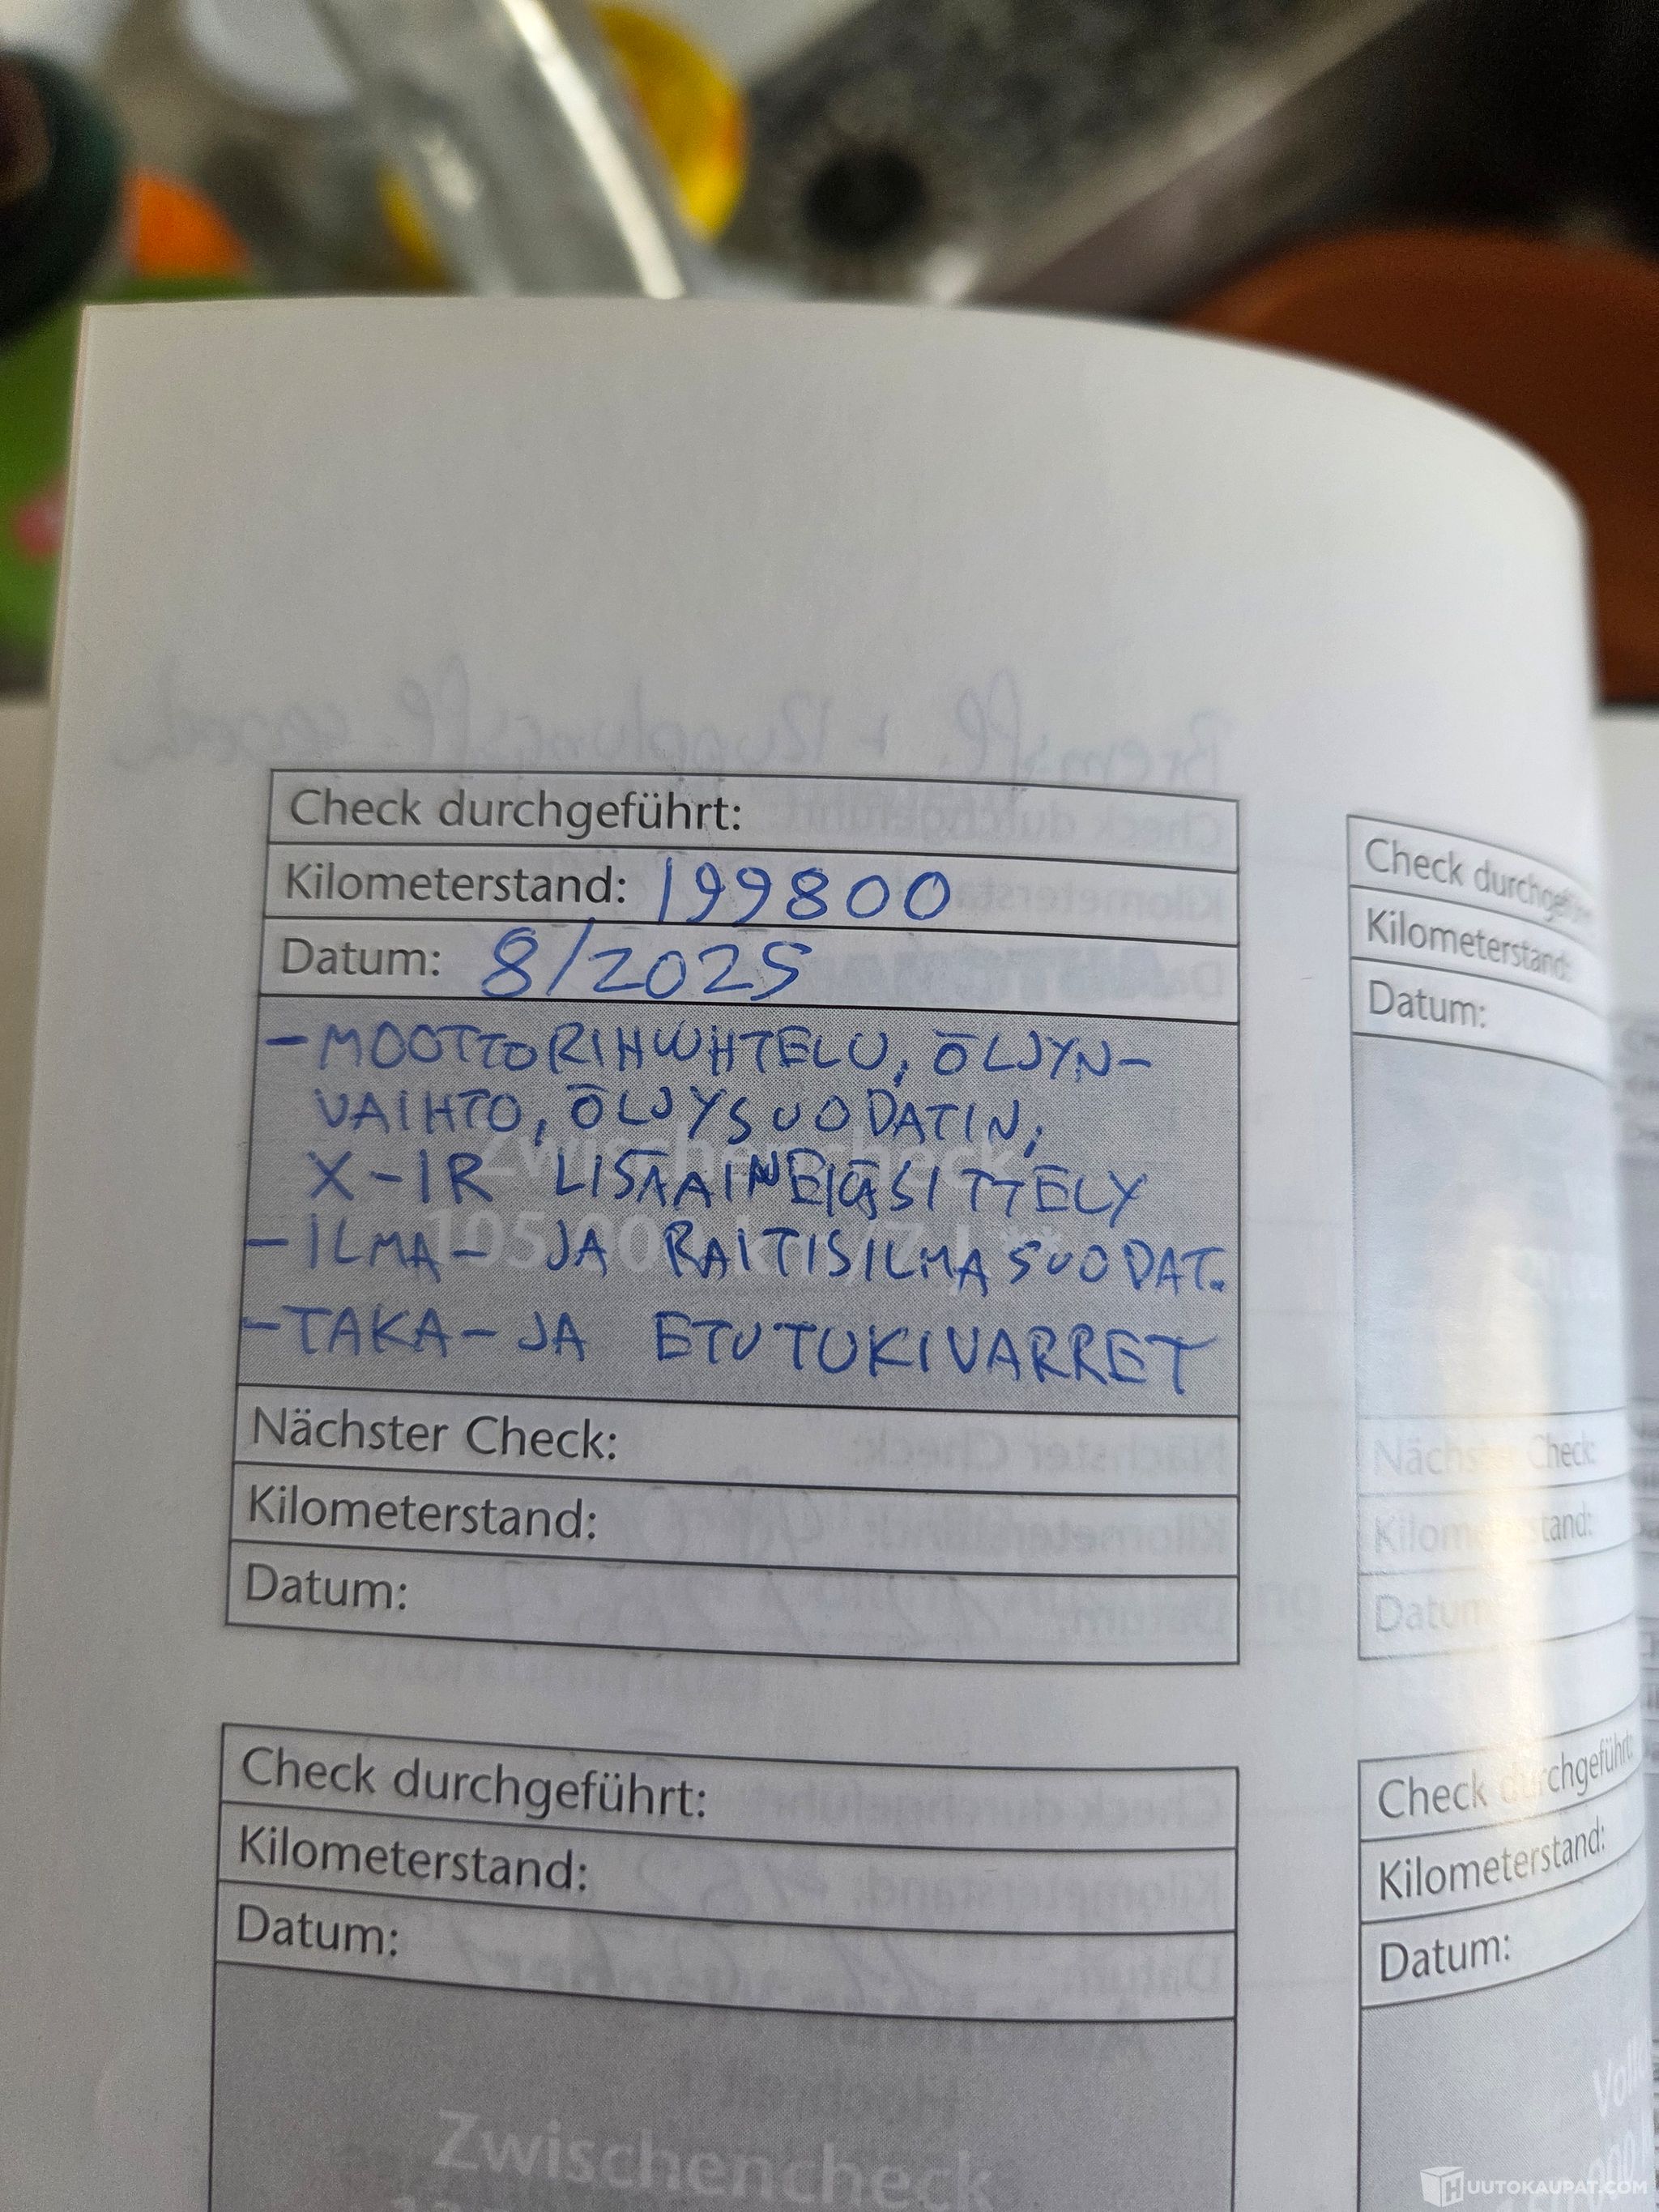 Check durchgeführt:
Kilometerstand: 199800
Datum: 8/2025
- MOOTTORIHUUHTELU, ÖLJYN-
VAIHTO, ÖLJYSUODATIN,
X-IR LISÄAINEKÄSITTELY
- ILMA- JA RAITISILMASUODAT.
- TAKA- JA ETUTUKIVARRET
Zwischencheck
Nächster Check:
Kilometerstand:
Datum:
Check durchgeführt:
Kilometerstand:
Datum:
Zwischencheck
Check durchgeführt:
Kilometerstand:
Datum:
Nächster Check:
Kilometerstand:
Datum:
Check durchgeführt:
Kilometerstand:
Datum:
HUUTOKAUPAT.COM